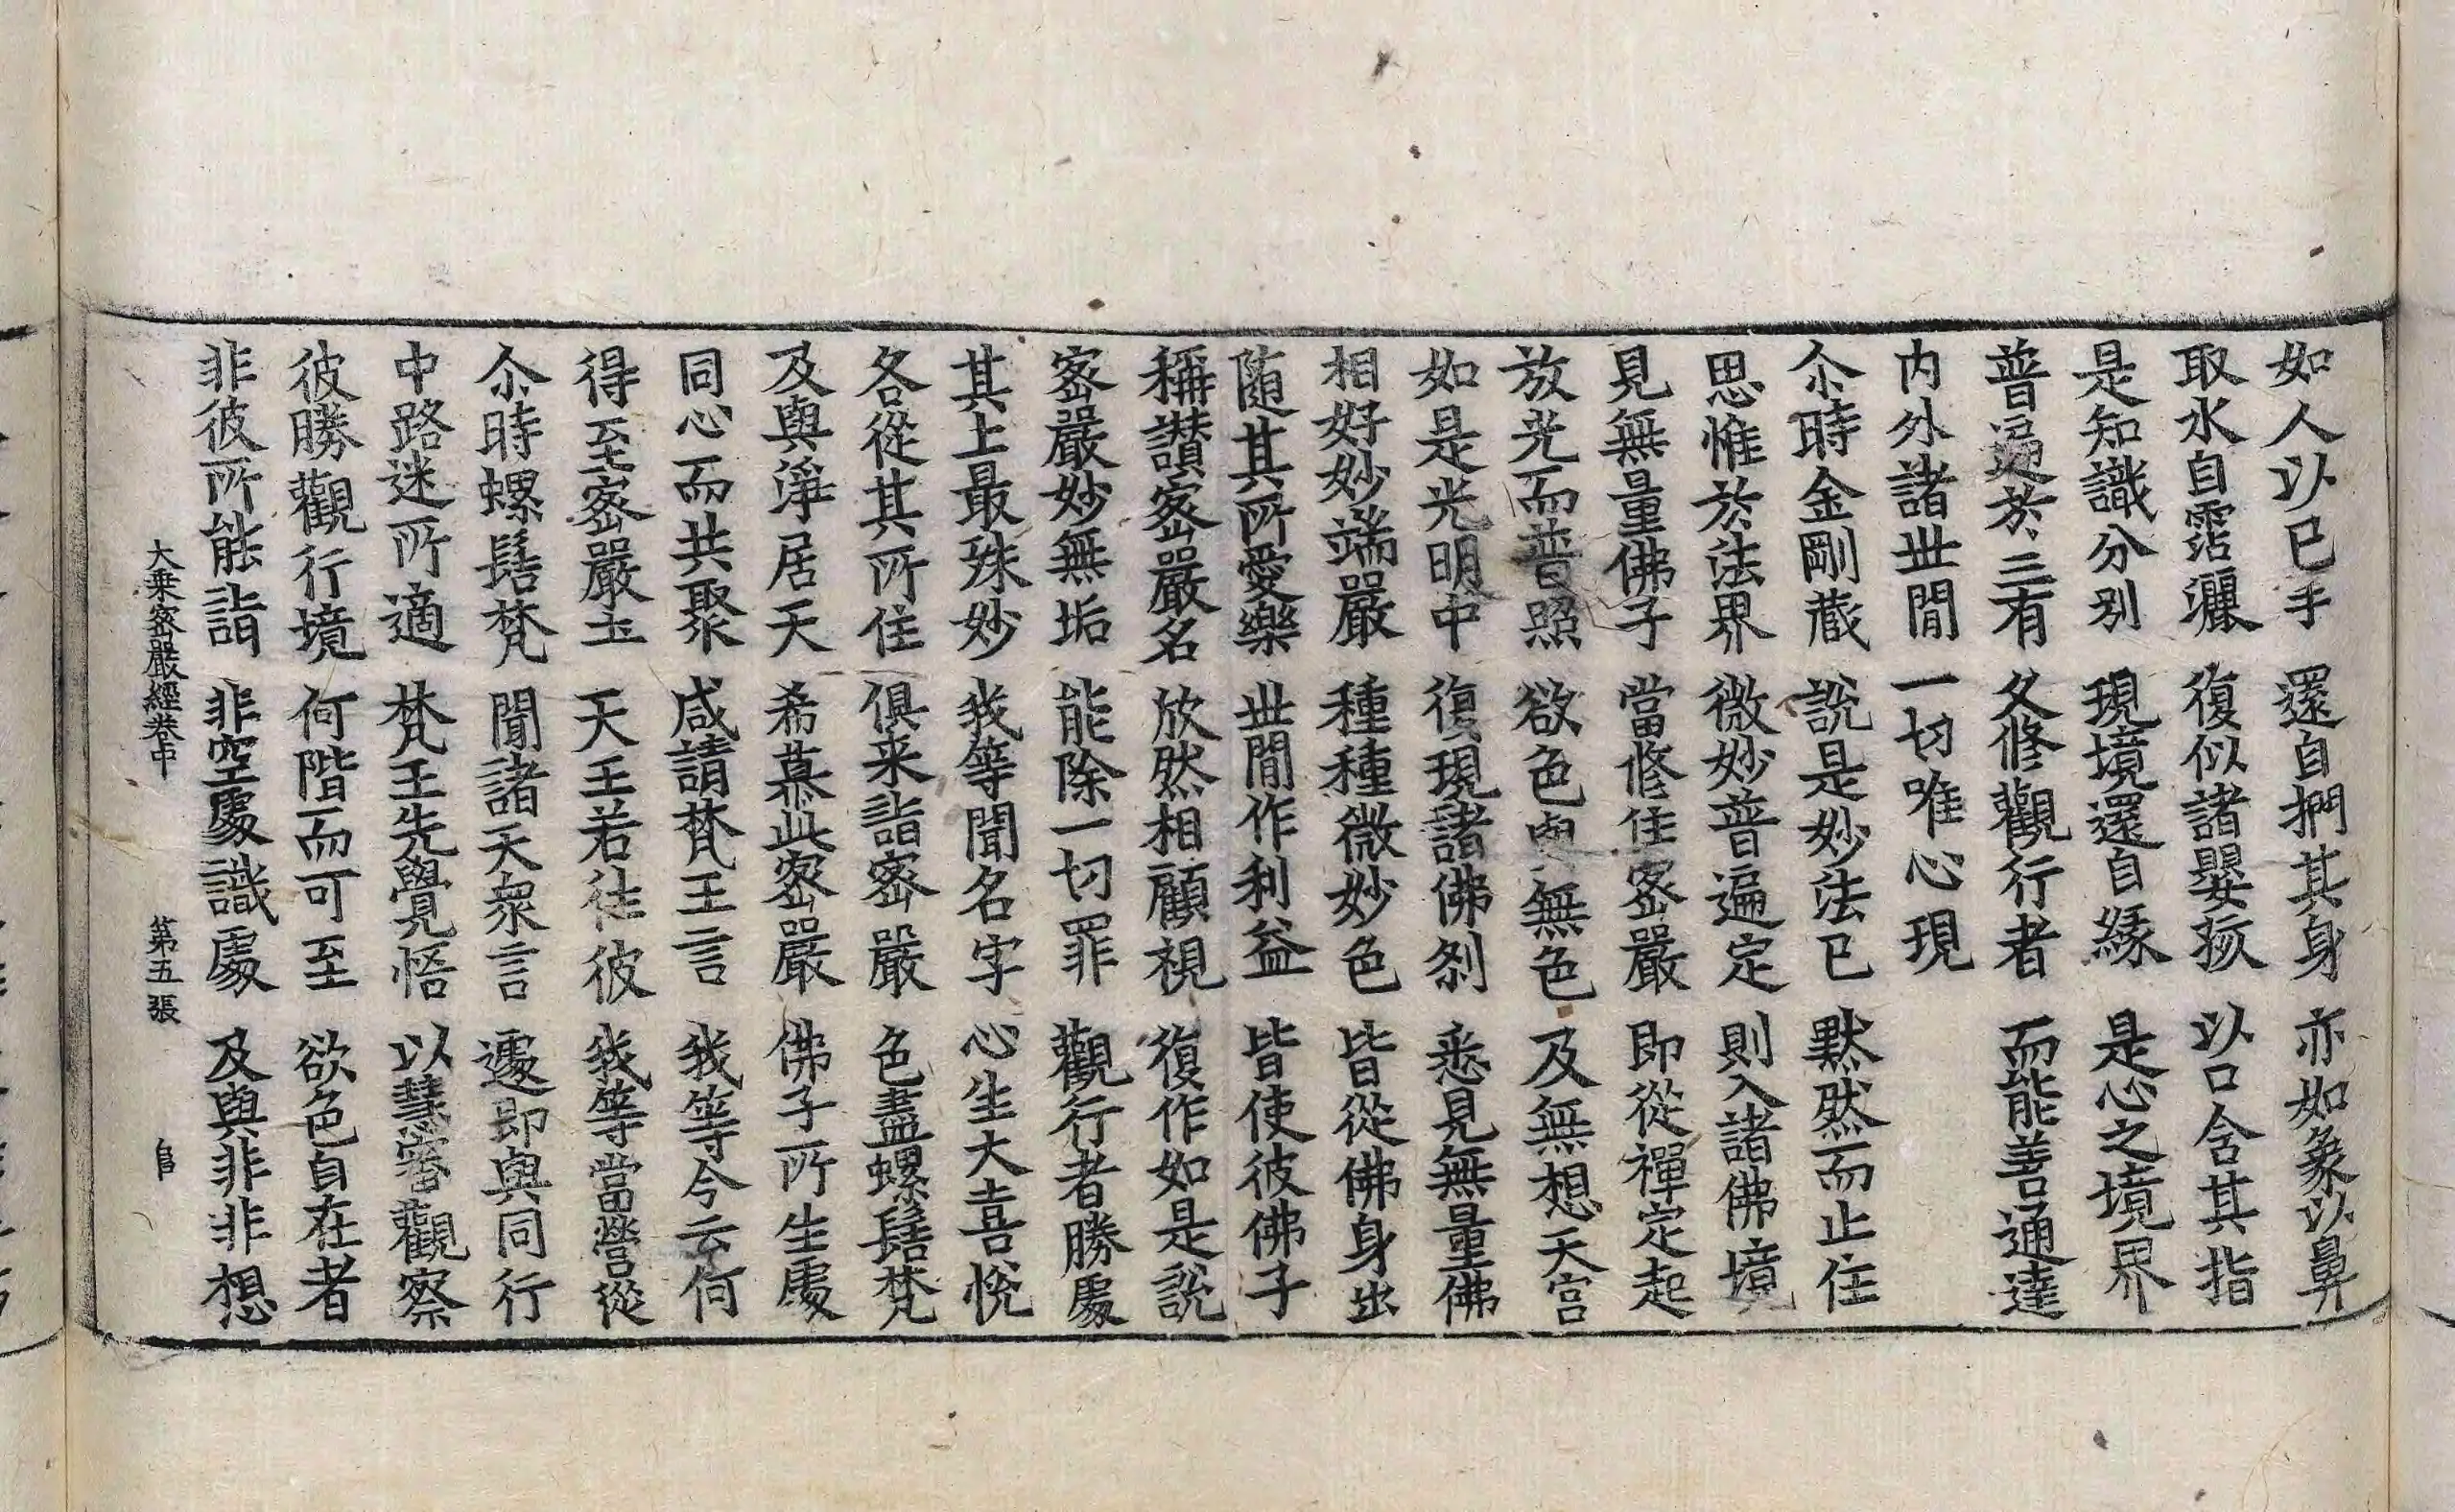 如人以已手　還自捫其身　亦如象以鼻
取水自霑灑　復似諸嬰孩　以口含其指
是知識分別　現境還自緣　是心之境界
普遍於三有　久修觀行者　而能善通達
内外諸世間　一切唯心現
尒時金剛藏　說是妙法已　默然而止住
思惟於法界　微妙普遍定　則入諸佛境
見無量佛子　當修住密嚴　即從禪定起
放光而普照　欲色與無色　及無想天宮
如是光明中　復現諸佛刹　悉見無量佛
相好妙端嚴　種種微妙色　皆從佛身出
随其所愛樂　世間作利益　皆使彼佛子
稱讃密嚴名　欣然相顧視　復作如是說
密嚴妙無垢　能除一切罪　觀行者勝處
其上最殊妙　我等聞名字　心生大喜悅
各從其所住　俱来詣密嚴　色盡螺髻梵
及與淨居天　希慕此密嚴　佛子所生處
同心而共聚　咸請梵王言　我等今云何
得至密嚴土　天王若往彼　我等當營從
尒時螺髻梵　聞諸天衆言　遽即與同行
中路迷所適　梵王先覺悟　以慧審觀察
彼勝觀行境　何階而可至　欲色自在者
非彼所能詣　非空處識處　及與非非想
大乗密嚴經卷中　第五張